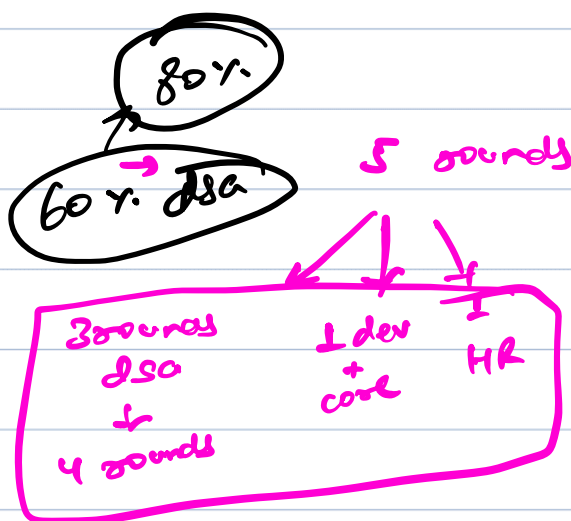 80%
60% dsa
5 rounds
3 rounds
dsa
↓
4 rounds
1 dev
+
core
1
HR